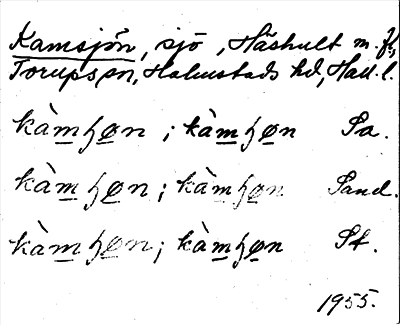 Kamsjön, sjö, Häshult m. fl.,
Torups sn, Halmstads hd, Hall. l.
kàmɧøn ; kàmɧøn Sa.
kàmɧøn ; kàmɧøn Sand.
kàmɧøn ; kàmɧøn St.
1955.